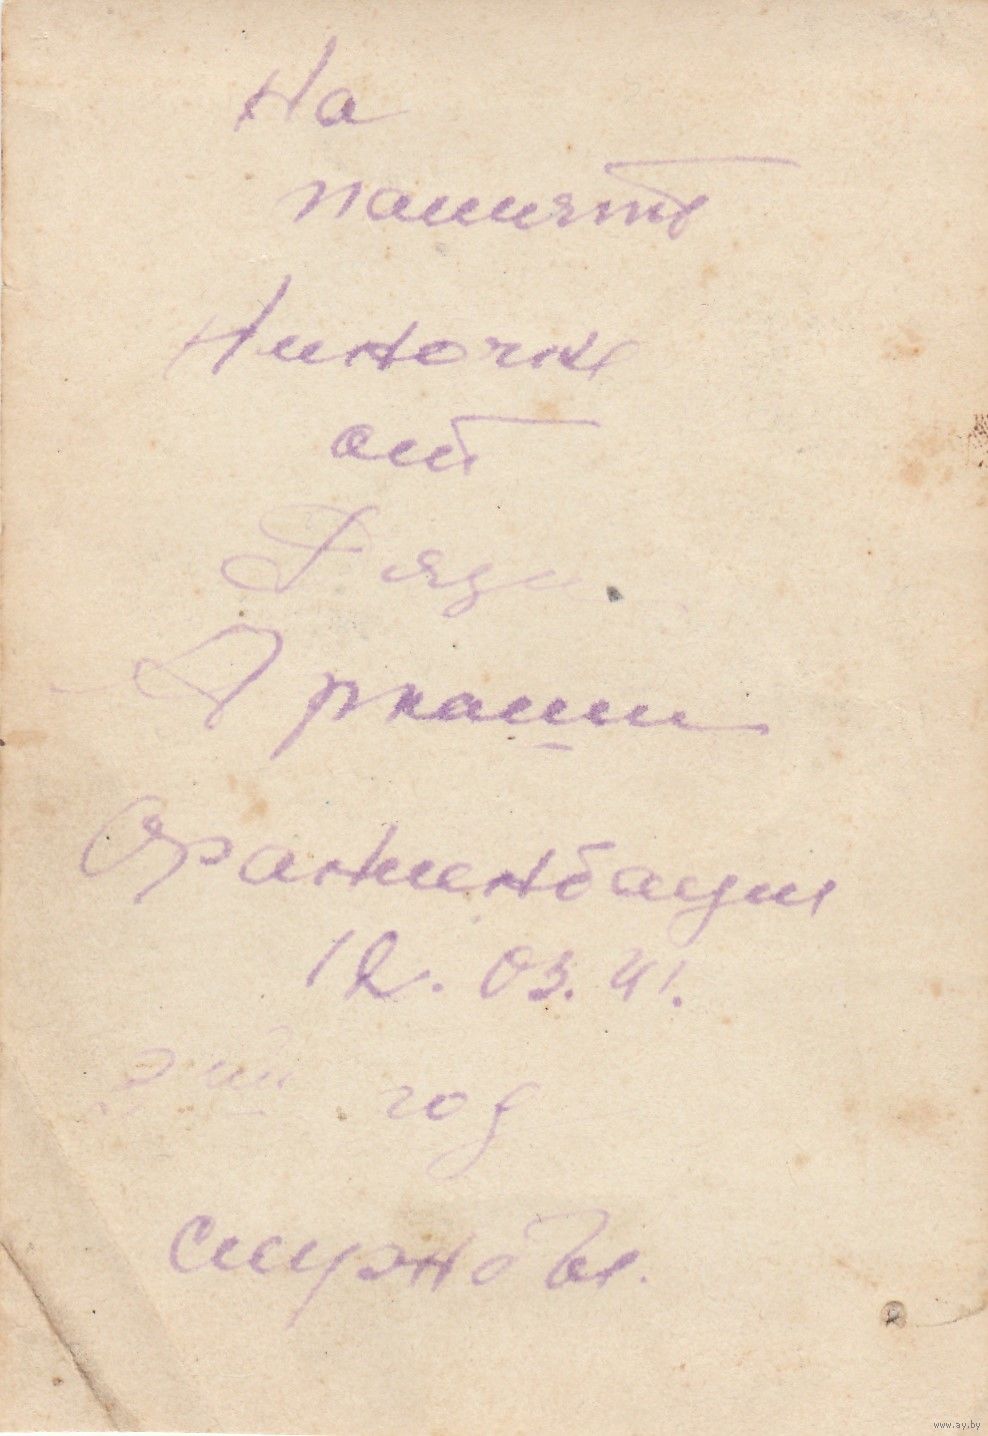 На
память
Ниночке
от
Дяди
Аркаши
Ораниенбаум
12.03.41.
2ой год
Смирновы.
www.ay.by